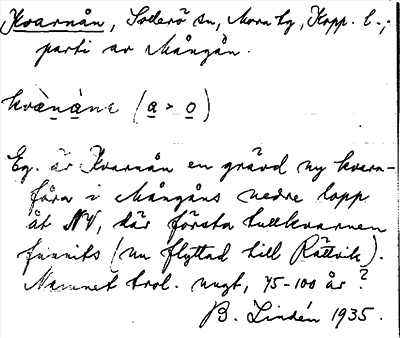 Kvarnån, Sollerö sn, Mora tg, Kopp. l.;
parti av Mångån.
kvànàne (a > o)
Eg. är Kvarnån en grävd ny kvarn-
fåra i Mångåns nedre lopp
åt NV, där första tullkvarnen
funnits (nu flyttad till Rättvik).
Namnet trol. ungt, 75-100 år?
B. Lindén 1935.